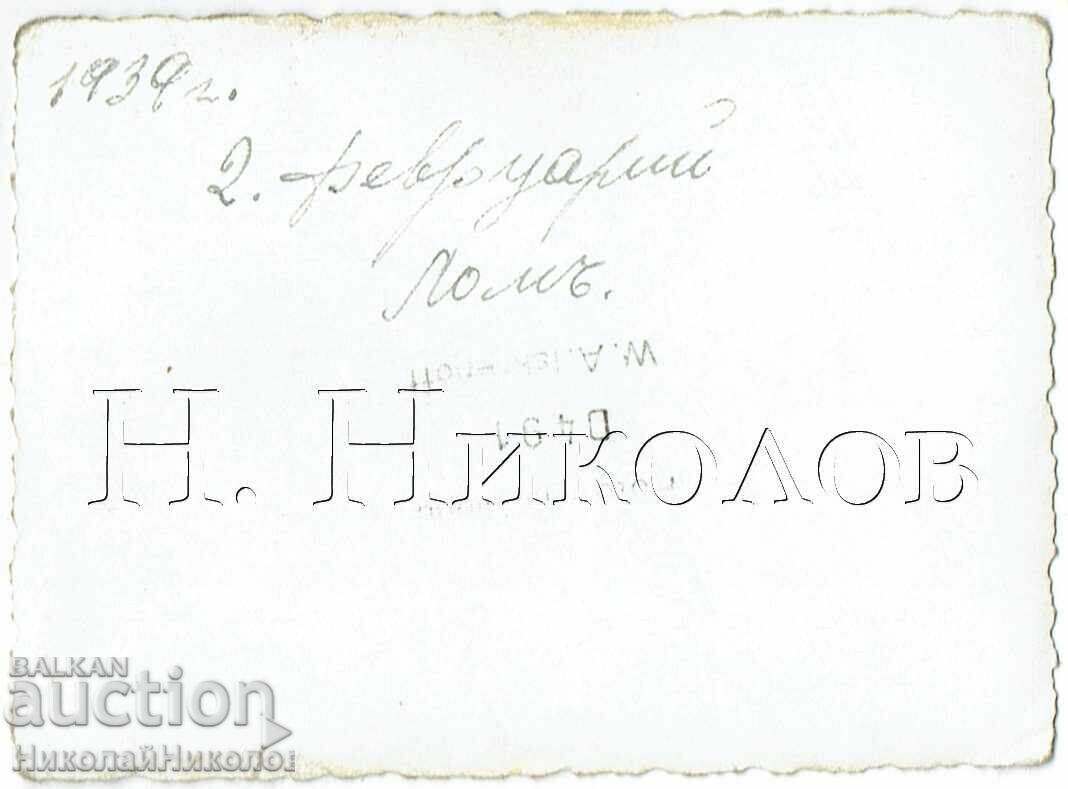 1939 г.
2. февруарий
Ломъ.
W. A.
0431
Н. Николов
BALKAN
auction
НиколайНиколов